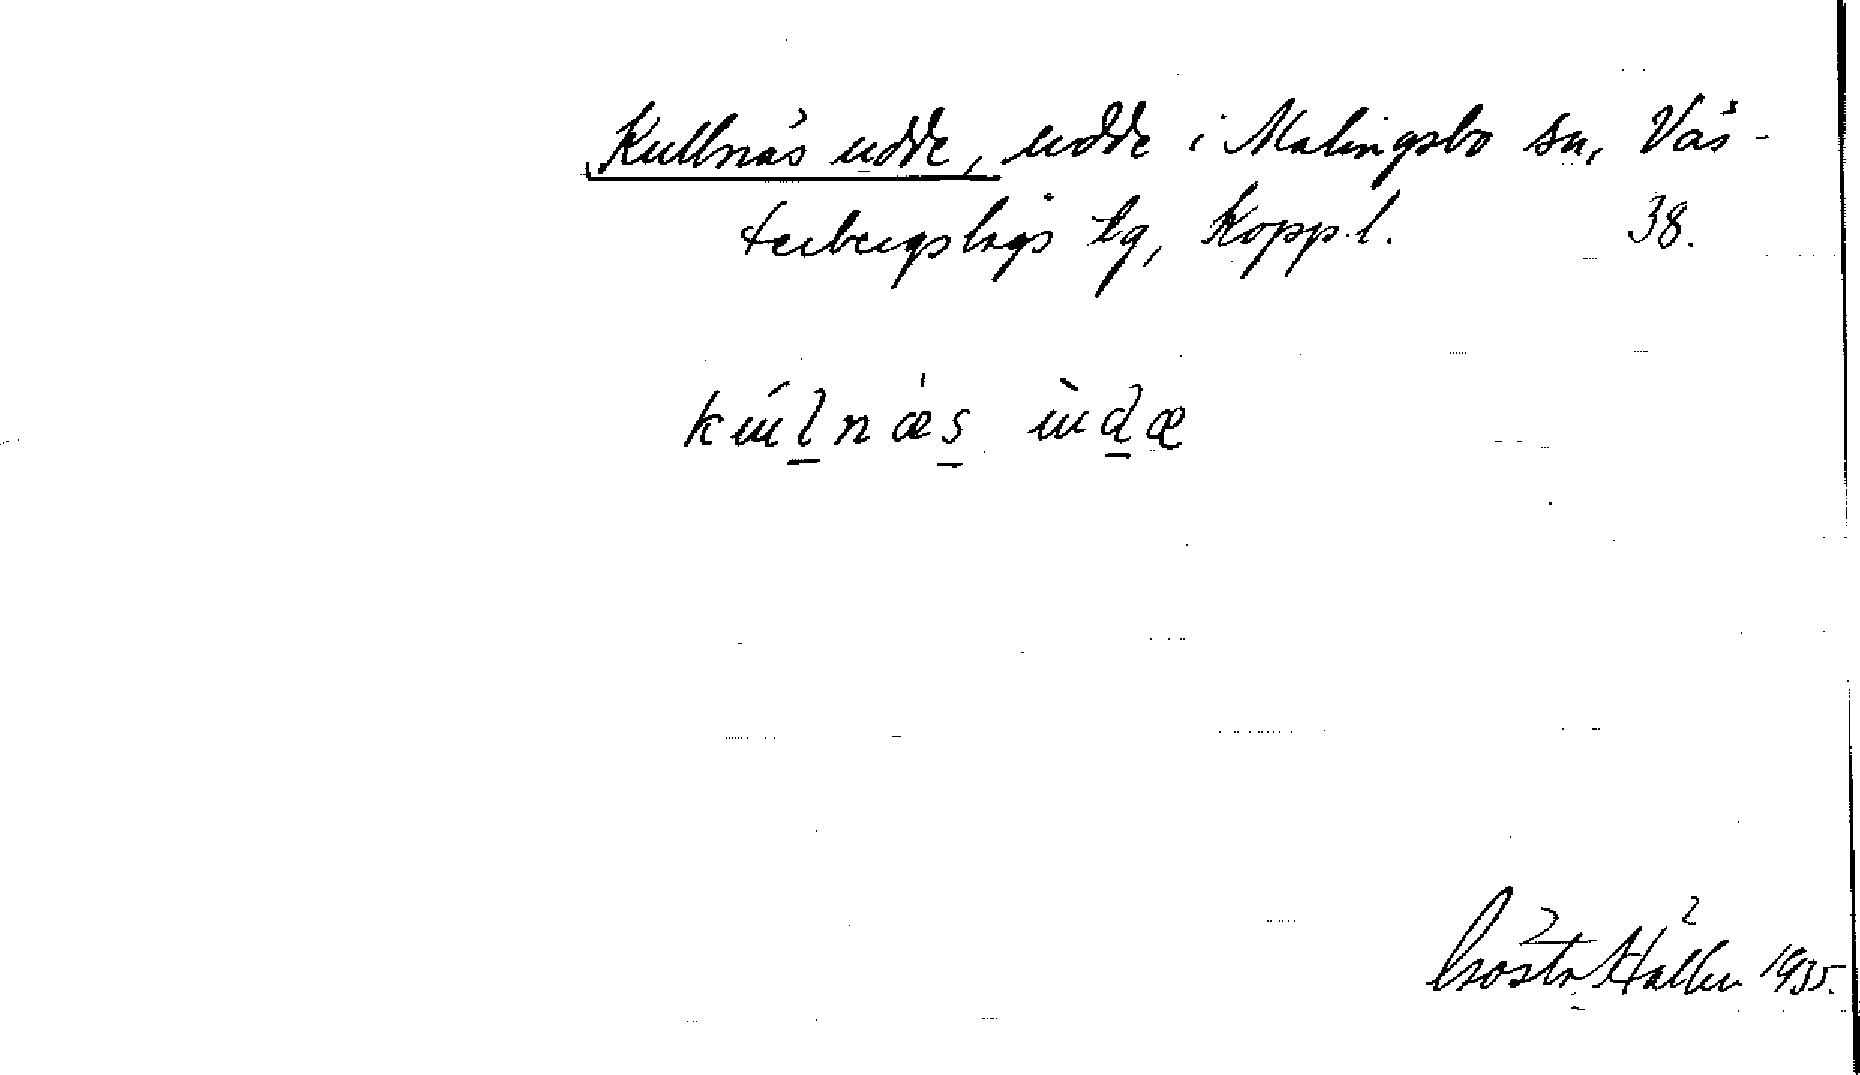 Kullnäs udde, udde i Malingsbo sn, Väs-
terbergslags tg, Kopp.l. 38.
kúl̲næ̀s̲ ùd̲æ
Gösta Hallén 1935.